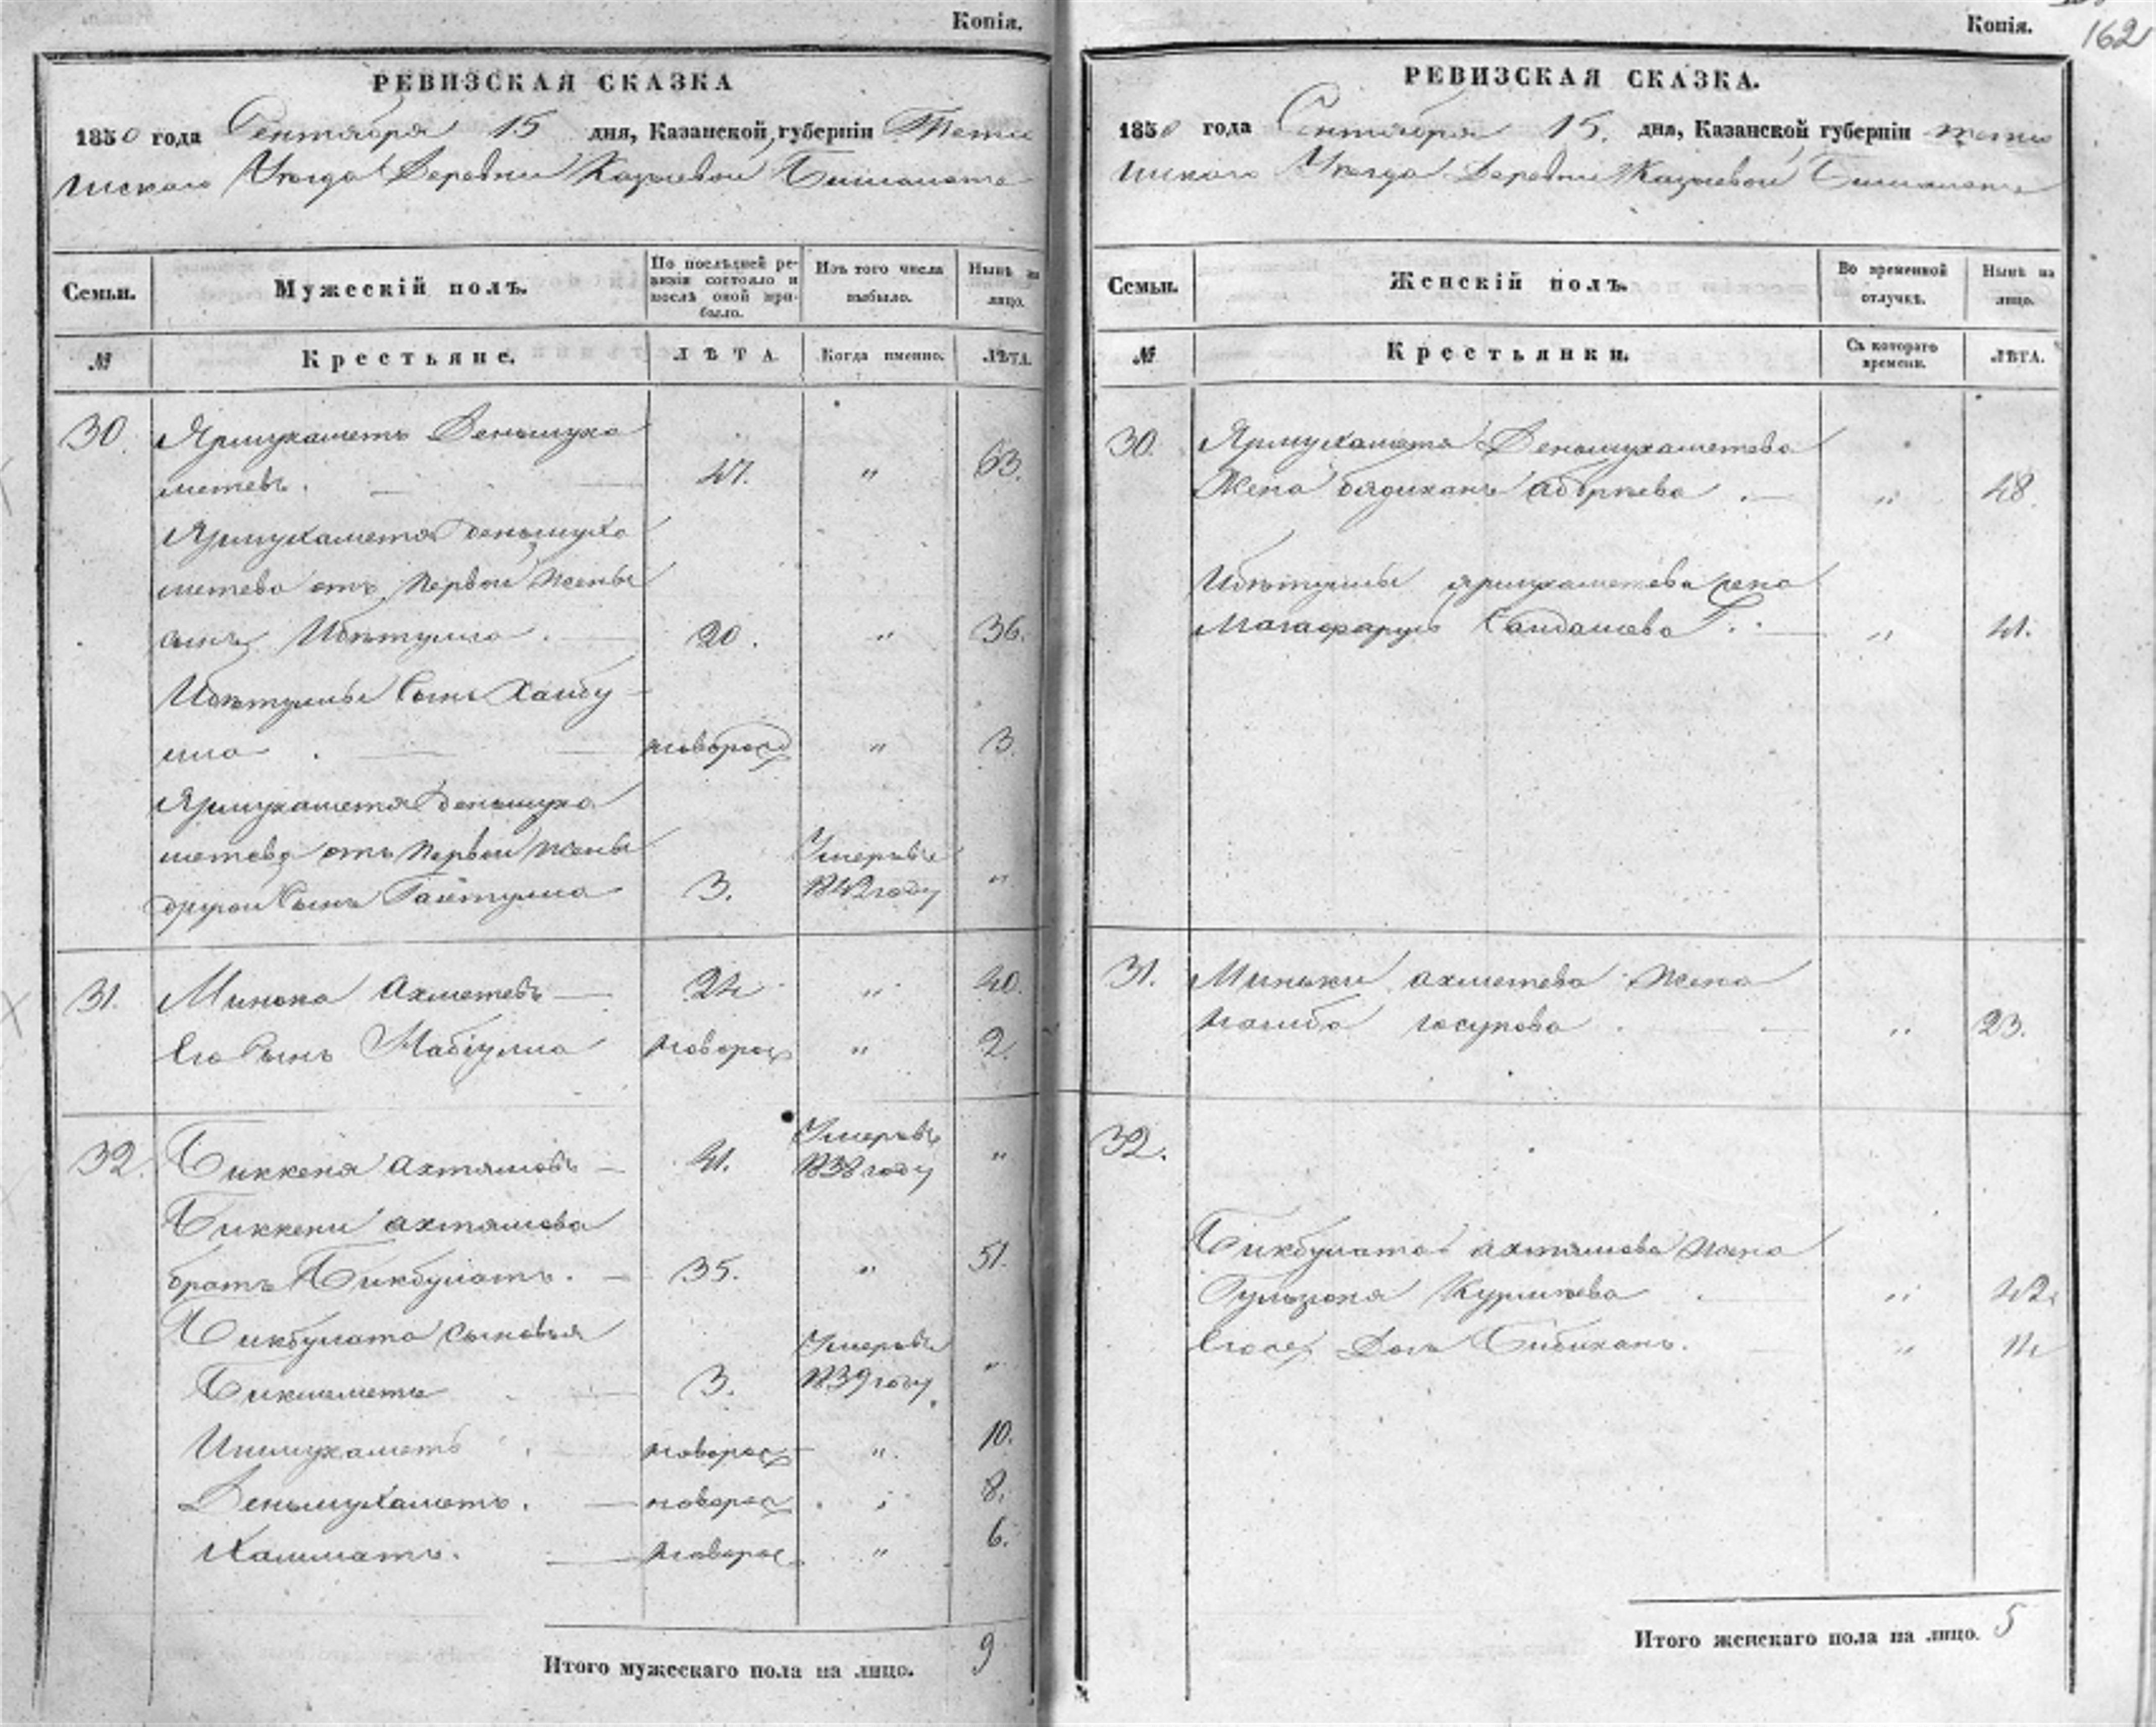 Копія.
РЕВИЗСКАЯ СКАЗКА
1850 года Сентября 15 дня, Казанской губерніи Тетю
шскаго Уезда Деревни
Семьи.
Мужескій полъ.
По послѣдней ре-
визіи состояло и
послѣ оной при-
было.
Изъ того числа
выбыло.
Нынѣ на
лицо.
№
Крестьяне.
ЛѢТА.
Когда именно.
ЛѢТА.
30. Ярмухаметъ Деньмуха
метевъ. 47. " 63.
Ярмухаметя Деньмуха
метева отъ первой жены
сынъ Ибѣтулла. 20. " 36.
Ибѣтуллы Сынъ Хайбу
лла. новорожд " 3.
Ярмухаметя Деньмуха
метева отъ первой жены Умеръ въ
другой Сынъ 3. 1842 году "
31. Минька Ахметевъ 24 " 40.
Его Сынъ Мабіулла новорож " 2.
32. Биккеня Ахтямовъ 41. Умеръ въ 1838 году "
Биккени Ахтямова
братъ Бикбулатъ. 35. " 51.
Бикбулата сыновья
Бикмаметъ 3. Умеръ въ 1839 году "
Ишмухаметъ новорож " 10.
Деньмухаметъ. новорож " 8.
новорож " 6.
Итого мужескаго пола на лицо. 9
Копія.
162
РЕВИЗСКАЯ СКАЗКА.
1850 года Сентября 15. дня, Казанской губерніи Тетю
шскаго Уезда Деревни
Семьи.
Женскій полъ.
Во временной
отлучкѣ.
Нынѣ на
лицо.
№
Крестьянки.
Съ котораго
времени.
ЛѢТА.
30. Ярмухаметя Деньмухаметева
Жена " 48.
Ибѣтуллы Ярмухаметева жена
" 41.
31. Миньки Ахметева жена
" 23.
32.
Бикбулата Ахтямова жена
" 42.
Ея дочь Бибиханъ. " 14
Итого женскаго пола на лицо. 5